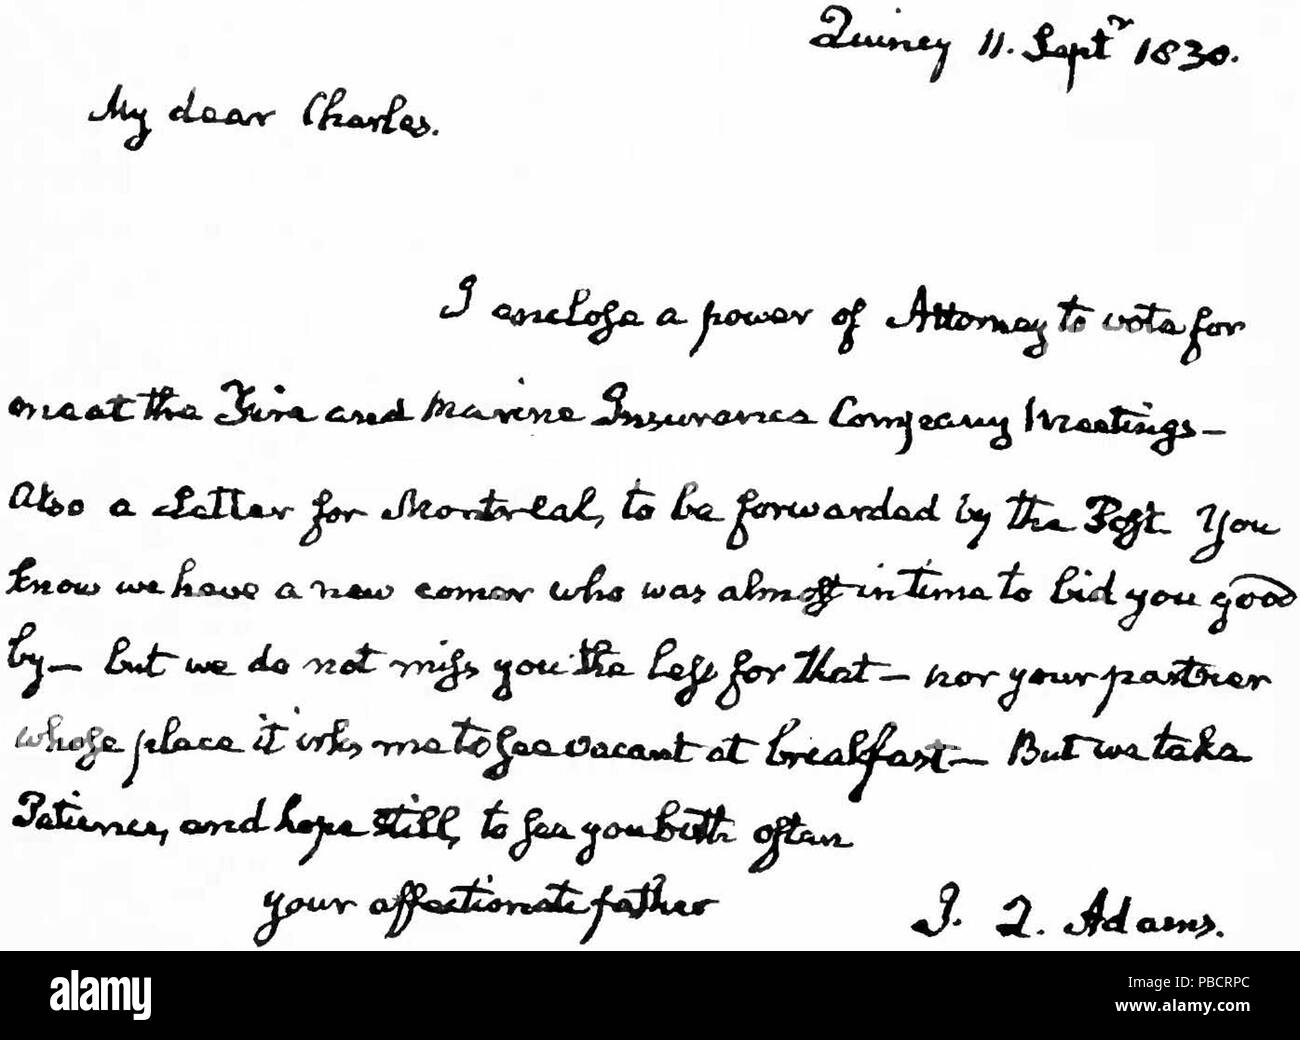 Quincy 11. Septr 1830.
My dear Charles.
I enclose a power of Attorney to vote for
me at the Fire and Marine Insurance Company Meetings—
Also a Letter for Montreal, to be forwarded by the Post. You
know we have a new comer who was almost in time to bid you good
by— but we do not miss you the less for that— nor your partner
whose place it irks me to see vacant at breakfast— But we take
Patience, and hope still, to see you both often
your affectionate father
J. Q. Adams.
alamy
Image ID: PBCRPC
www.alamy.com